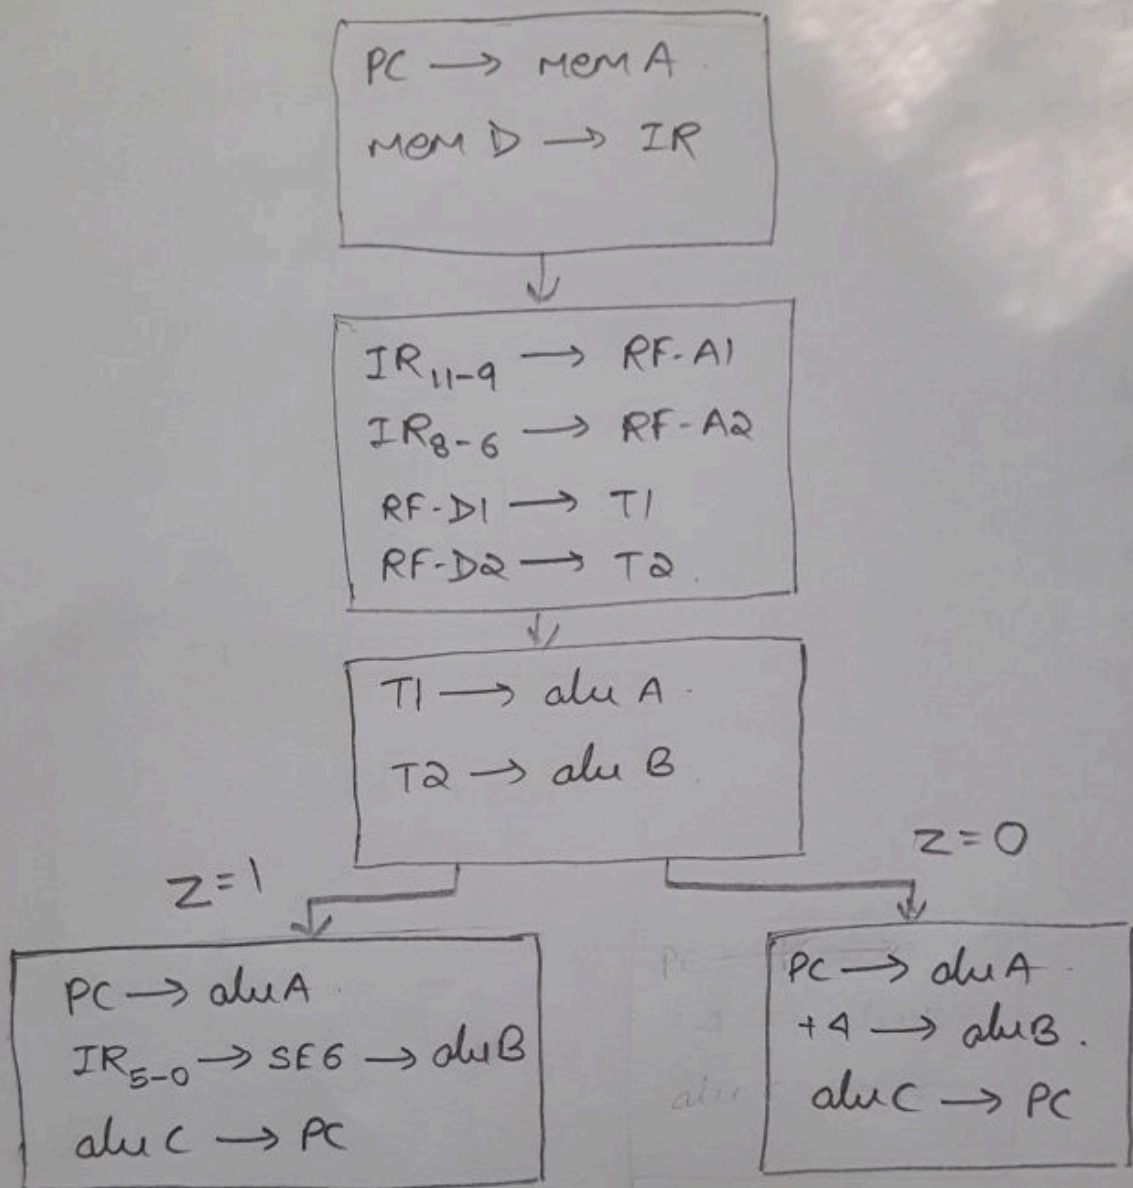 PC → Mem A
Mem D → IR
IR11-9 → RF-A1
IR8-6 → RF-A2
RF-D1 → T1
RF-D2 → T2
T1 → alu A
T2 → alu B
Z=1
Z=0
PC → alu A
IR5-0 → SE6 → alu B
alu C → PC
PC → alu A
+4 → alu B.
alu C → PC